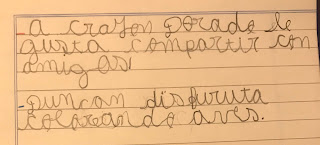 -A crayon Dorado le
gusta compartir con
amigas!
-Duncan disfuruta
coloreando aves.